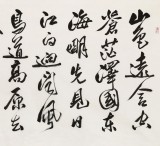 山色遠含空
蒼茫澤國東
海明先見日
江白迥聞風
鳥道高原去